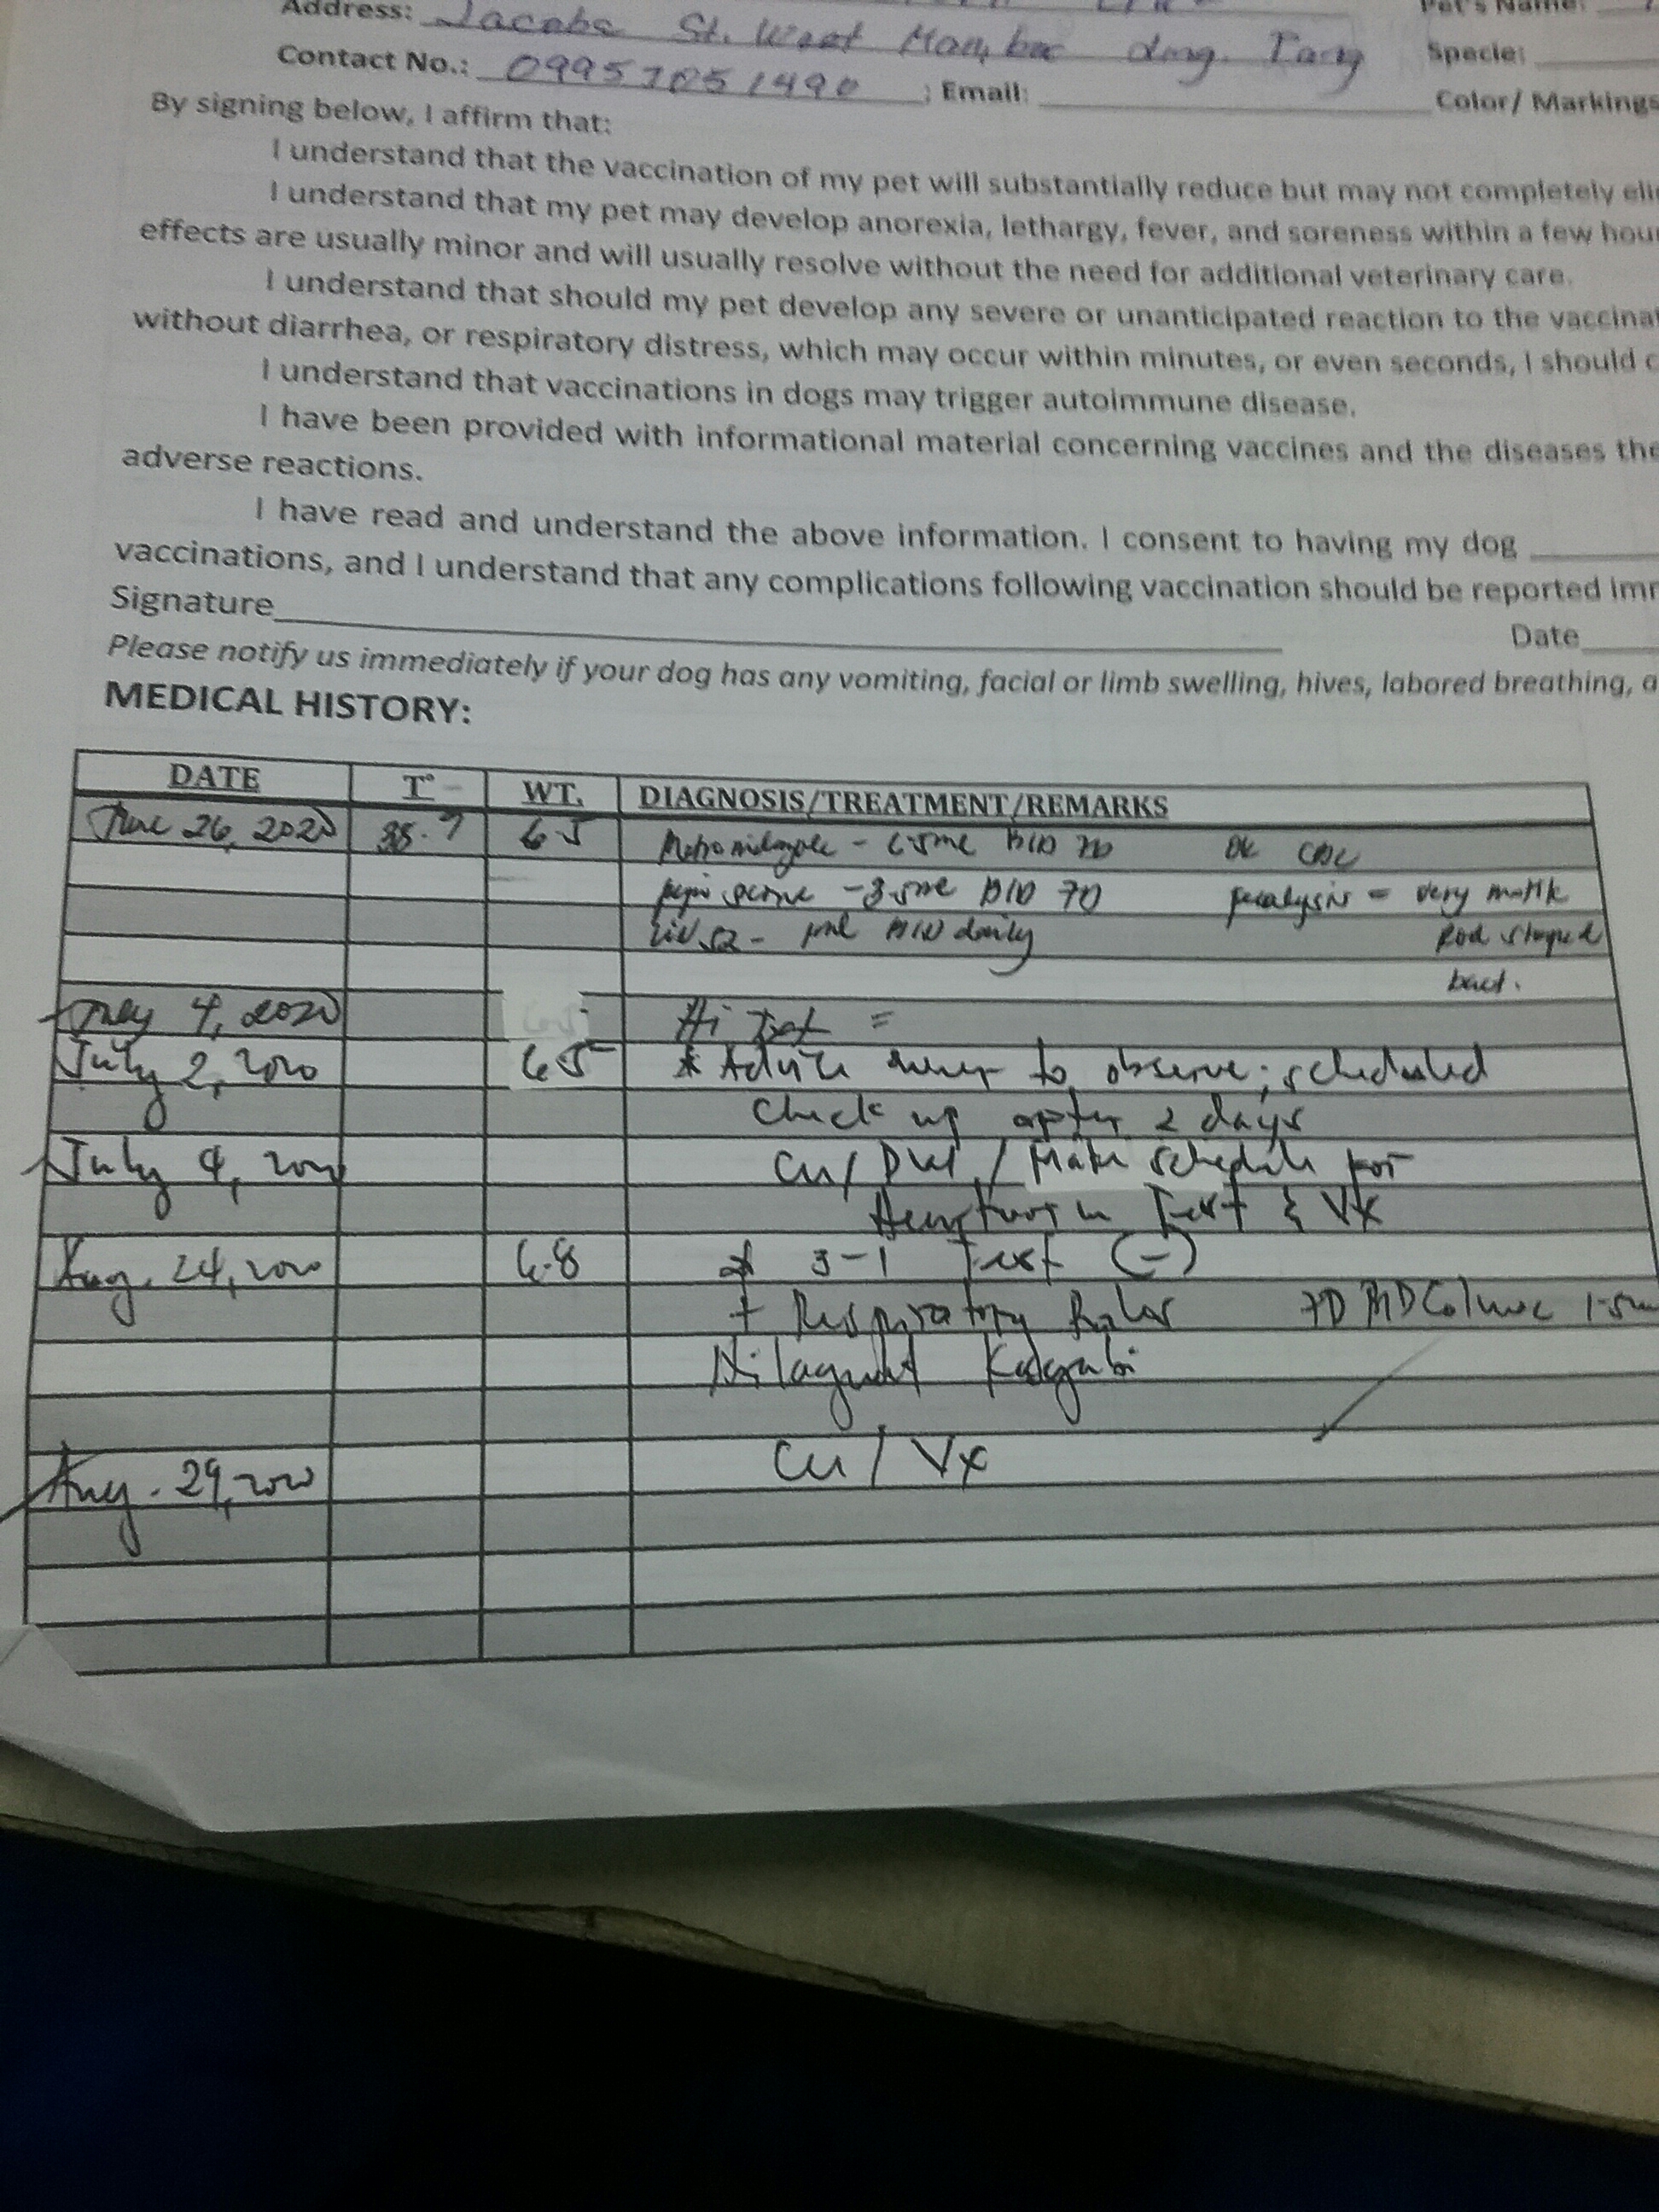 Address: Jacobs St. West
Pet's Name:
Contact No.: ; Email:
Specie:
Color/ Markings
By signing below, I affirm that:
I understand that the vaccination of my pet will substantially reduce but may not completely eli
I understand that my pet may develop anorexia, lethargy, fever, and soreness within a few hou
effects are usually minor and will usually resolve without the need for additional veterinary care.
I understand that should my pet develop any severe or unanticipated reaction to the vaccinat
without diarrhea, or respiratory distress, which may occur within minutes, or even seconds, I should c
I understand that vaccinations in dogs may trigger autoimmune disease.
I have been provided with informational material concerning vaccines and the diseases the
adverse reactions.
I have read and understand the above information. I consent to having my dog
vaccinations, and I understand that any complications following vaccination should be reported imm
Signature
Date
Please notify us immediately if your dog has any vomiting, facial or limb swelling, hives, labored breathing, a
MEDICAL HISTORY:
DATE T° WT. DIAGNOSIS/TREATMENT/REMARKS
June 26, 2020 38.7 6.5 BID 7D CBC
BID 7D fecalysis = very
Liv.52 - BID daily Rod shaped
bact.
July 4, 2020
July 2, 2020 6.5 * Advice owner to observe; scheduled
Check up after 2 days
July 4, 2020 Cu/ / Make schedule for
Test & Vx
Aug. 24, 2020 6.8 3-1 Test (-)
+ Respiratory Rales 7D BID
Nilagnat Kagabi
Aug. 29, 2020 Cu / Vx